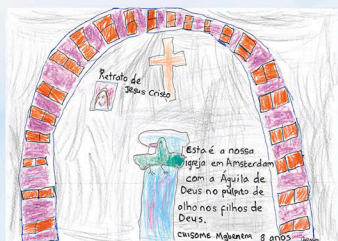 Retrato de
Jesus Cristo
Esta é a nossa
igreja em Amsterdam
com a Águila de
Deus no púlpito de
olho nos filhos de
Deus.
8 anos